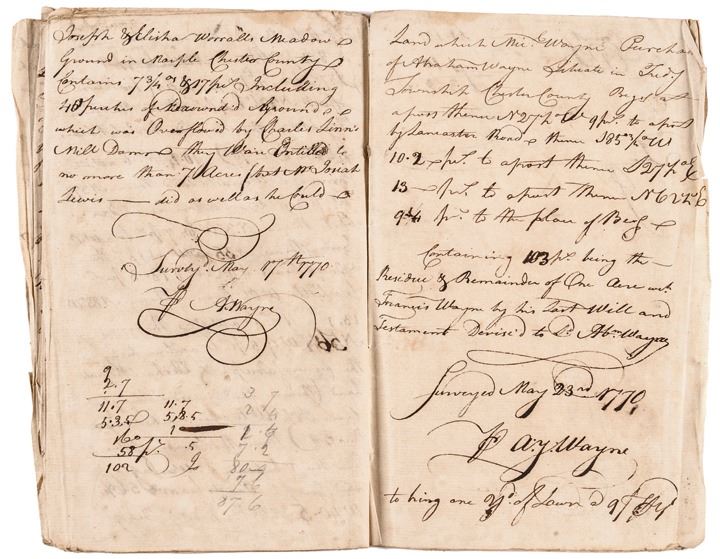 Joseph & Elisha Worralls Meadow
Ground in Marple Chester County
Contains 7 3/4 & 17 prs Including
40 perches of Ground
which was Overflowed by Charles Linn's
Mill Dam they Ware Entitled to
no more than 7 Acres so that Mr Josiah
Lewis did as well as he Could
Survey'd May 17th 1770
Pr A. Wayne
9
2.7
11.7 11.7
5.3.5 5.8.5
160 1
58 pr .5
102
Land which Wayne Purchas
of Abraham Wayne Situate in
Township Chester County at
a post thence N 27 Wt 9 prs to a post
by Lancaster Road thence
10.2 prs to a post thence
13 prs to a post thence N 62 E
9 1/4 prs to the place of Beg
Containing 103 prs being the
Residue & Remainder of One Acre wch
Francis Wayne by his Last Will and
Testament Devise'd to Abm Wayne
Surveyed May 23rd 1770
Pr A.Y. Wayne
to bring one yd of Lawn